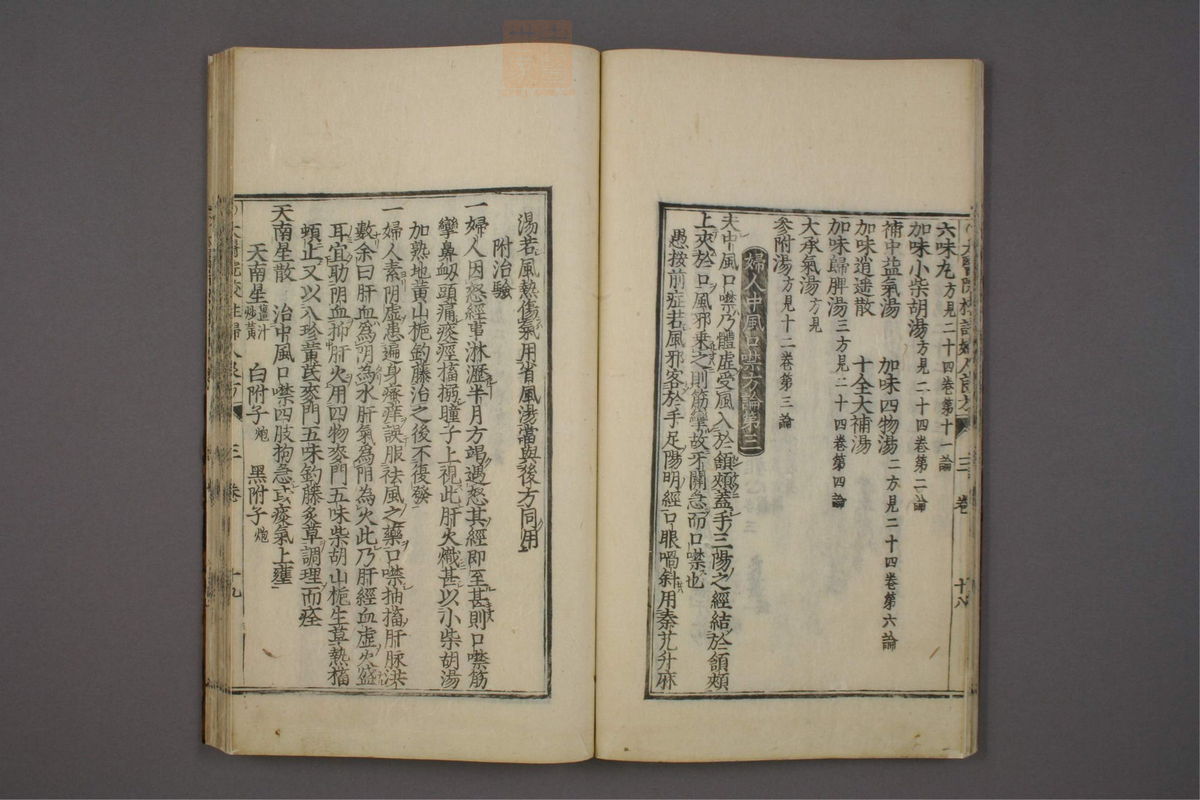 六味丸方見二十四卷第十一論
加味小柴胡湯方見二十四卷第二論
補中益氣湯 加味四物湯二方見二十四卷第六論
加味逍遙散 十全大補湯
加味歸脾湯三方見二十四卷第四論
大承氣湯方見
參附湯方見十二卷第三論
婦人中風口噤方論第三
夫中風口噤乃體虛受風入於頷頰蓋手三陽之經結於頷頰
上夾於口風邪乘之則筋攣故牙關急而口噤也
愚按前症若風邪客於手足陽明經口眼喎斜用秦艽升麻
三卷 十八
湯若風熱傷氣用省風湯當與後方同用
附治驗
一婦人因怒經事淋瀝半月方竭遇怒其經即至甚則口噤筋
攣鼻衂頭痛痰痙搐搦瞳子上視此肝火熾甚以小柴胡湯
加熟地黃山梔鈎藤治之後不復發
一婦人素陰虛患遍身瘙痒誤服祛風之藥口噤抽搐肝脉洪
數余曰肝血為陰為水肝氣為陽為火此乃肝經血虛火盛
耳宜助陰血抑肝火用四物麥門五味柴胡山梔生草熱搐
頓止又以八珍黃芪麥門五味鈎藤炙草調理而痊
天南星散 治中風口噤四肢拘急或痰氣上壅
天南星薑汁炒黃 白附子炮 黑附子炮
三卷 十九